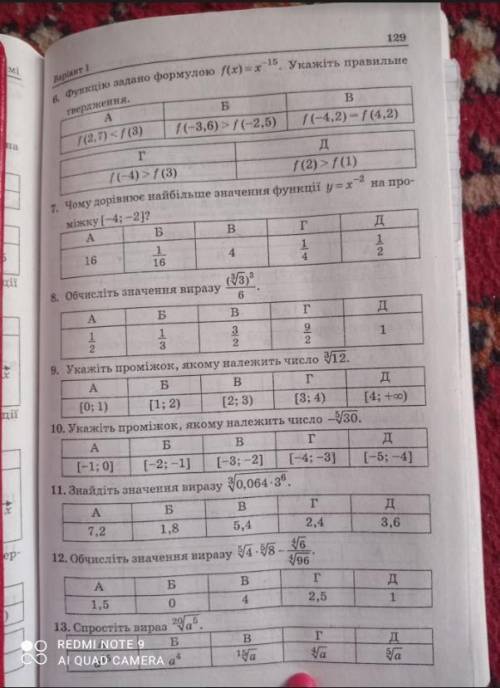 129
Варіант 1
6. Функцію задано формулою f(x) = x⁻¹⁵. Укажіть правильне
твердження.
А Б В
f(2,7) < f(3) f(−3,6) > f(−2,5) f(−4,2) = f(4,2)
Г Д
f(−4) > f(3) f(2) > f(1)
7. Чому дорівнює найбільше значення функції y = x⁻² на про-
міжку [−4; −2]?
А Б В Г Д
16 1/16 4 1/4 1/2
8. Обчисліть значення виразу (∛3)³/6.
А Б В Г Д
1/2 1/3 3/2 9/2 1
9. Укажіть проміжок, якому належить число ∛12.
А Б В Г Д
[0; 1) [1; 2) [2; 3) [3; 4) [4; +∞)
10. Укажіть проміжок, якому належить число −⁵√30.
А Б В Г Д
[−1; 0] [−2; −1] [−3; −2] [−4; −3] [−5; −4]
11. Знайдіть значення виразу ∛(0,064 · 3⁶).
А Б В Г Д
7,2 1,8 5,4 2,4 3,6
12. Обчисліть значення виразу ⁵√4 · ⁵√8 − ⁴√6/⁴√96.
А Б В Г Д
1,5 0 4 2,5 1
13. Спростіть вираз ²⁰√a⁵.
Б В Г Д
a⁴ ¹⁵√a ⁴√a ⁵√a
REDMI NOTE 9
AI QUAD CAMERA